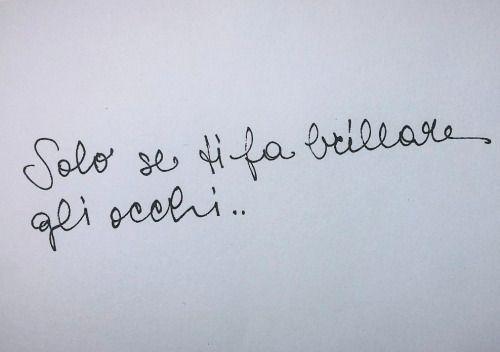 Solo se ti fa brillare
gli occhi..